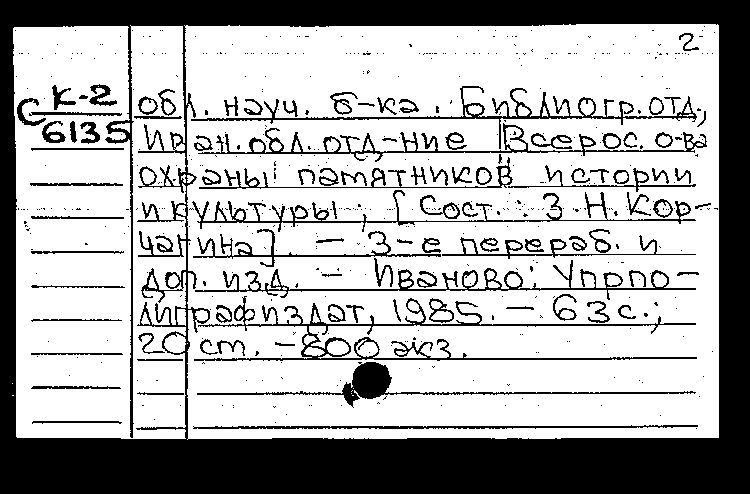 2
С К-2
6135
обл. науч. б-ка. Библиогр. отд.,
Иван. обл. отд-ние Всерос. о-ва
охраны памятников истории
и культуры; [Сост.: З.Н. Кор-
чагина]. — 3-е перераб. и
доп. изд. — Иваново: Упрпо-
лиграфиздат, 1985. — 63 с.;
20 ст. — 800 экз.